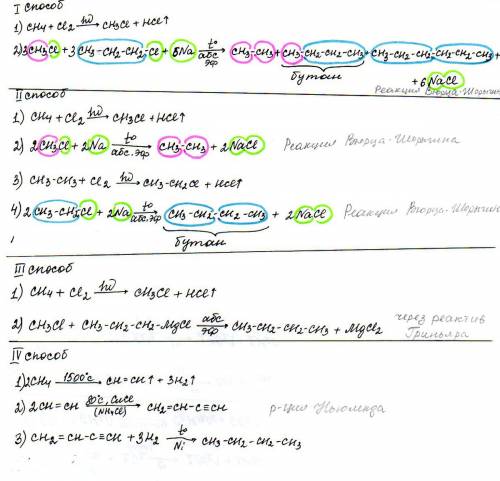 I способ
1) CH4 + Cl2 hν→ CH3Cl + HCl↑
2) 3CH3Cl + 3 CH3-CH2-CH2-Cl + 6Na t° абс. эф.→ CH3-CH3 + CH3-CH2-CH2-CH3 + CH3-CH2-CH2-CH2-CH2-CH3 +
бутан + 6NaCl
Реакция Вюрца-Шорыгина
II способ
1) CH4 + Cl2 hν→ CH3Cl + HCl↑
2) 2CH3Cl + 2Na t° абс. эф→ CH3-CH3 + 2NaCl Реакция Вюрца-Шорыгина
3) CH3-CH3 + Cl2 hν→ CH3-CH2Cl + HCl↑
4) 2 CH3-CH2Cl + 2Na t° абс. эф→ CH3-CH2-CH2-CH3 + 2NaCl Реакция Вюрца-Шорыгина
бутан
III способ
1) CH4 + Cl2 hν→ CH3Cl + HCl↑
2) CH3Cl + CH3-CH2-CH2-MgCl абс эф→ CH3-CH2-CH2-CH3 + MgCl2 через реактив Гриньяра
IV способ
1) 2CH4 1500°C→ CH≡CH↑ + 3H2↑
2) 2CH≡CH 80°C, CuCl (NH4Cl)→ CH2=CH-C≡CH р-ция Ньюленда
3) CH2=CH-C≡CH + 3H2 t° Ni→ CH3-CH2-CH2-CH3